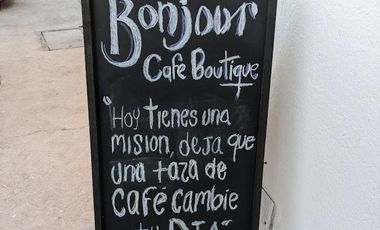 Bonjour
Cafe Boutique
"Hoy tienes una
mision, deja que
una taza de
CAFÉ cambie
tu DIA"